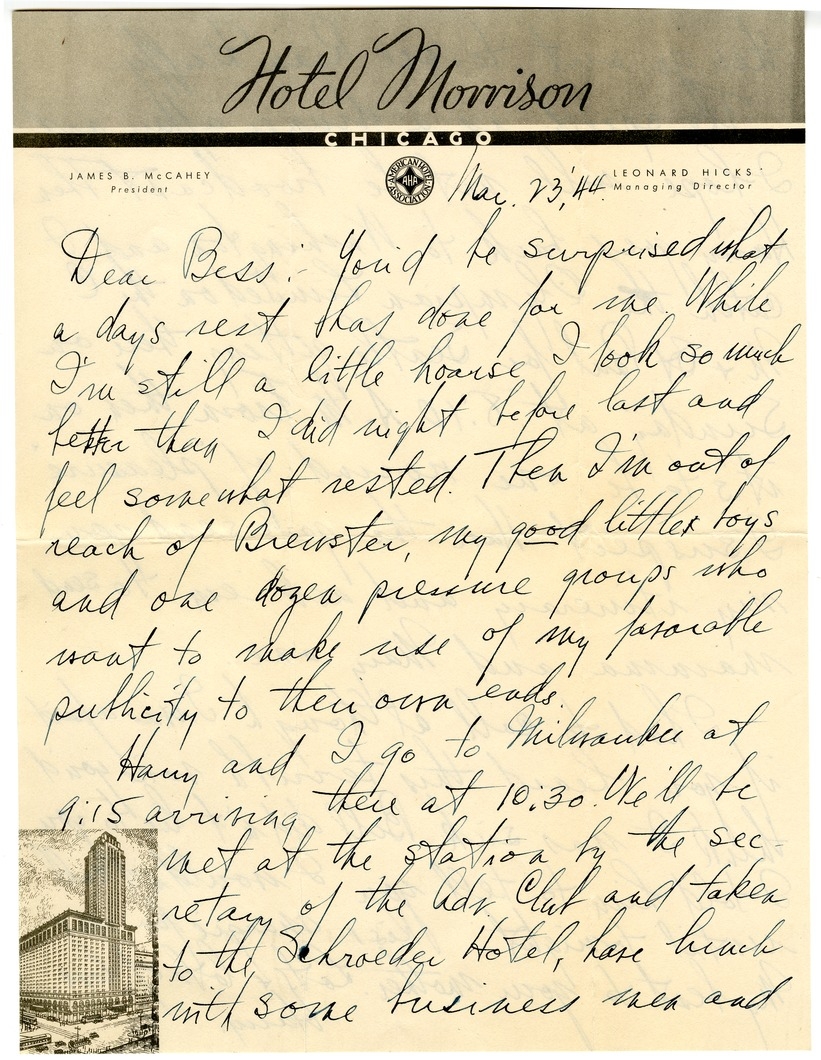 Hotel Morrison
CHICAGO
JAMES B. McCAHEY
President
AMERICAN HOTEL ASSOCIATION
AHA
LEONARD HICKS
Managing Director
Mar. 23, '44
Dear Bess:- You'd be surprised what
a days rest has done for me. While
I'm still a little hoarse I look so much
better than I did night before last and
feel somewhat rested. Then I'm out of
reach of Brewster, my good little boys
and one dozen pressure groups who
want to make use of my favorable
publicity to their own ends.
Harry and I go to Milwaukee at
9:15 arriving there at 10:30. We'll be
met at the station by the sec-
retary of the Adv. Club and taken
to the Schroeder Hotel, have lunch
with some business men and